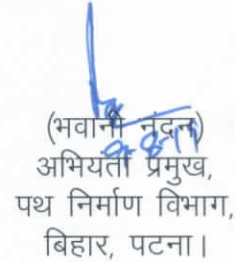 (भवानी नंदन)
9-8-17
अभियंता प्रमुख,
पथ निर्माण विभाग,
बिहार, पटना।